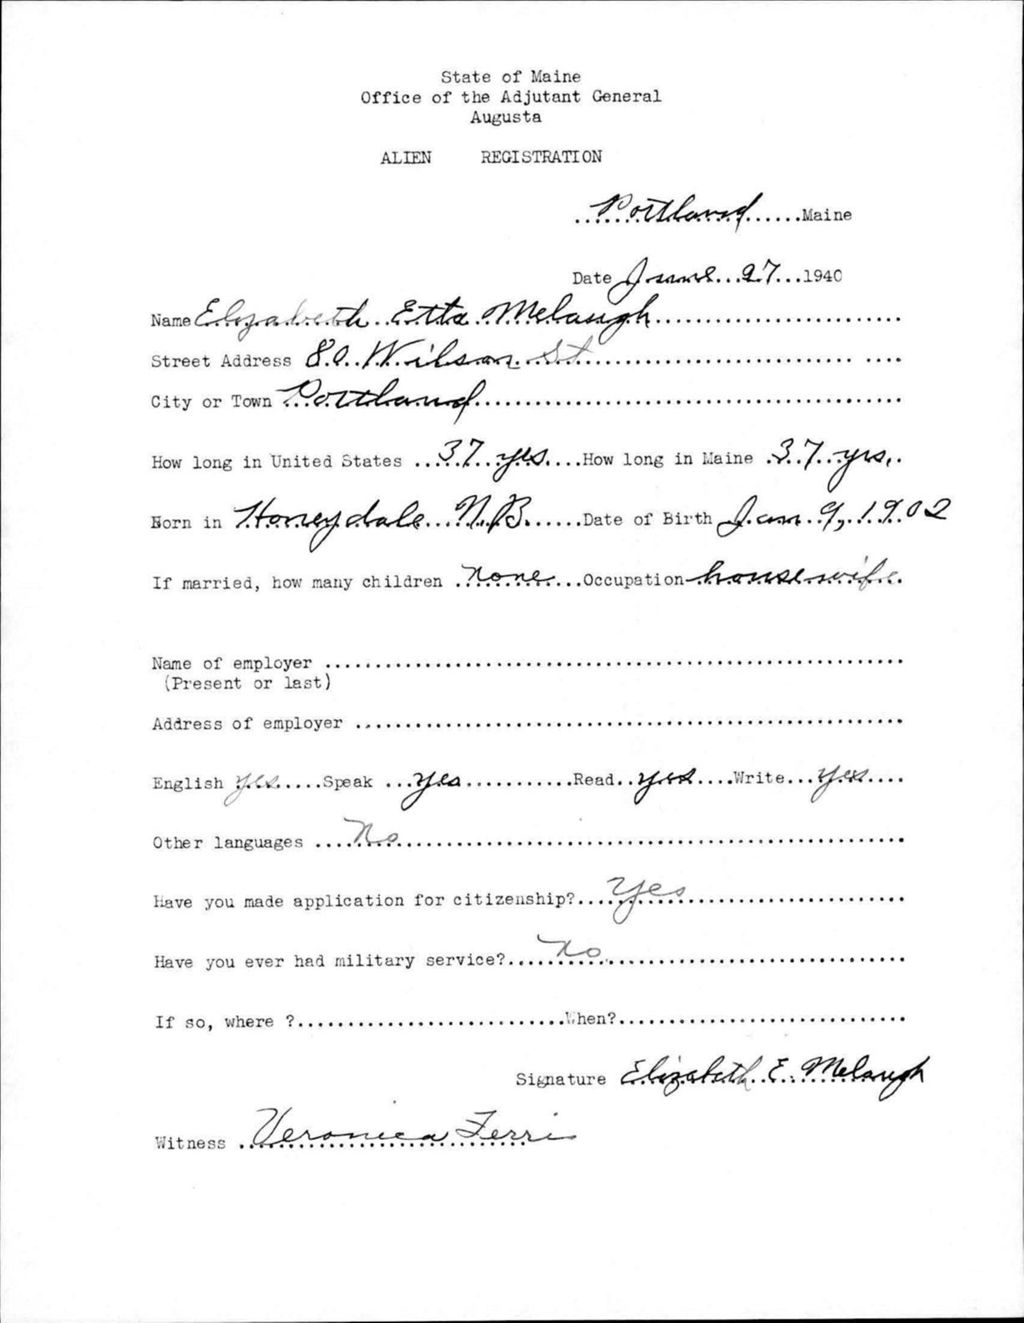 State of Maine
Office of the Adjutant General
Augusta
ALIEN REGISTRATION
Portland Maine
Date June 27 1940
Name Elizabeth Etta Melaugh
Street Address 80 Wilson St
City or Town Portland
How long in United States 37 yrs How long in Maine 37 yrs.
Born in Honeydale N.B. Date of Birth Jan 9, 1902
If married, how many children none Occupation housewife
Name of employer
(Present or last)
Address of employer
English yes Speak yes Read yes Write yes
Other languages No
Have you made application for citizenship? Yes
Have you ever had military service? no
If so, where ? When?
Signature Elizabeth E. Melaugh
Witness Veronica Ferri